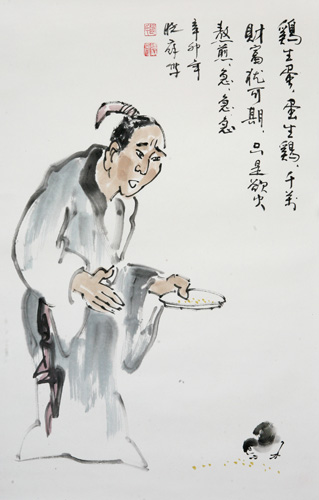 鷄生蛋、蛋生鷄、千萬
財富犹可期、只是欲火
熬煎、急、急急
辛卯年